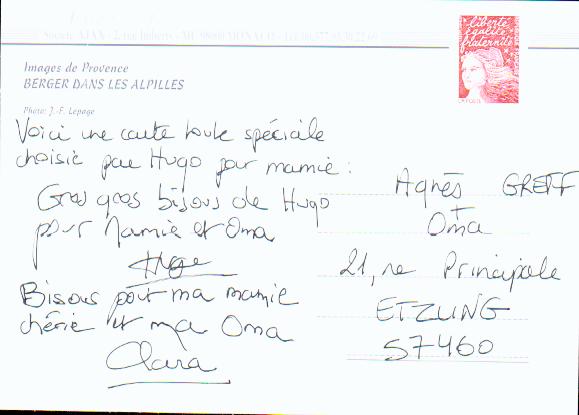 Société AJAX - 2, rue Imberty - MC 98000 MONACO - Tél. 00.377.93.30.22.69
liberté
égalité
fraternité
LA POSTE
Images de Provence
BERGER DANS LES ALPILLES
Photo: J.-F. Lepage
Voici une carte toute spéciale
choisie par Hugo pour mamie :
Gros gros bisous de Hugo
pour Mamie et Oma
Hugo
Bisous pour ma mamie
chérie et ma Oma
Clara
Agnès GREFF
+
Oma
21, rue Principale
ETZLING
57460